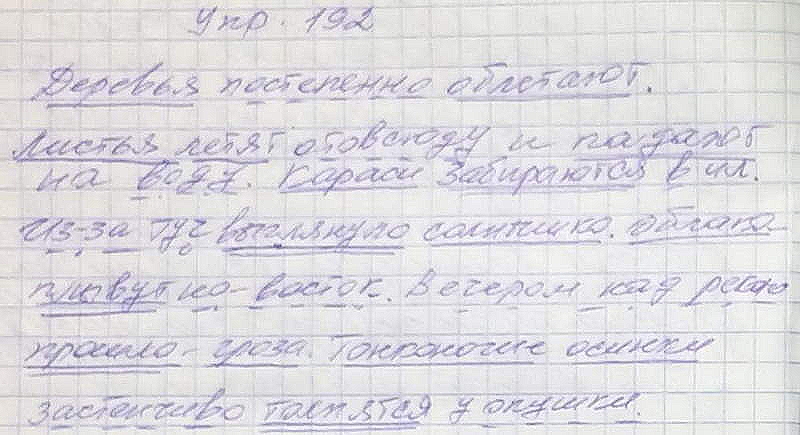 Упр. 192
Деревья постепенно облетают.
Листья летят отовсюду и падают
на воду. Караси забираются в ил.
Из-за туч выглянуло солнышко. Облака
плывут на восток. Вечером над рекою
прошла гроза. Тонконогие осинки
застенчиво толпятся у опушки.